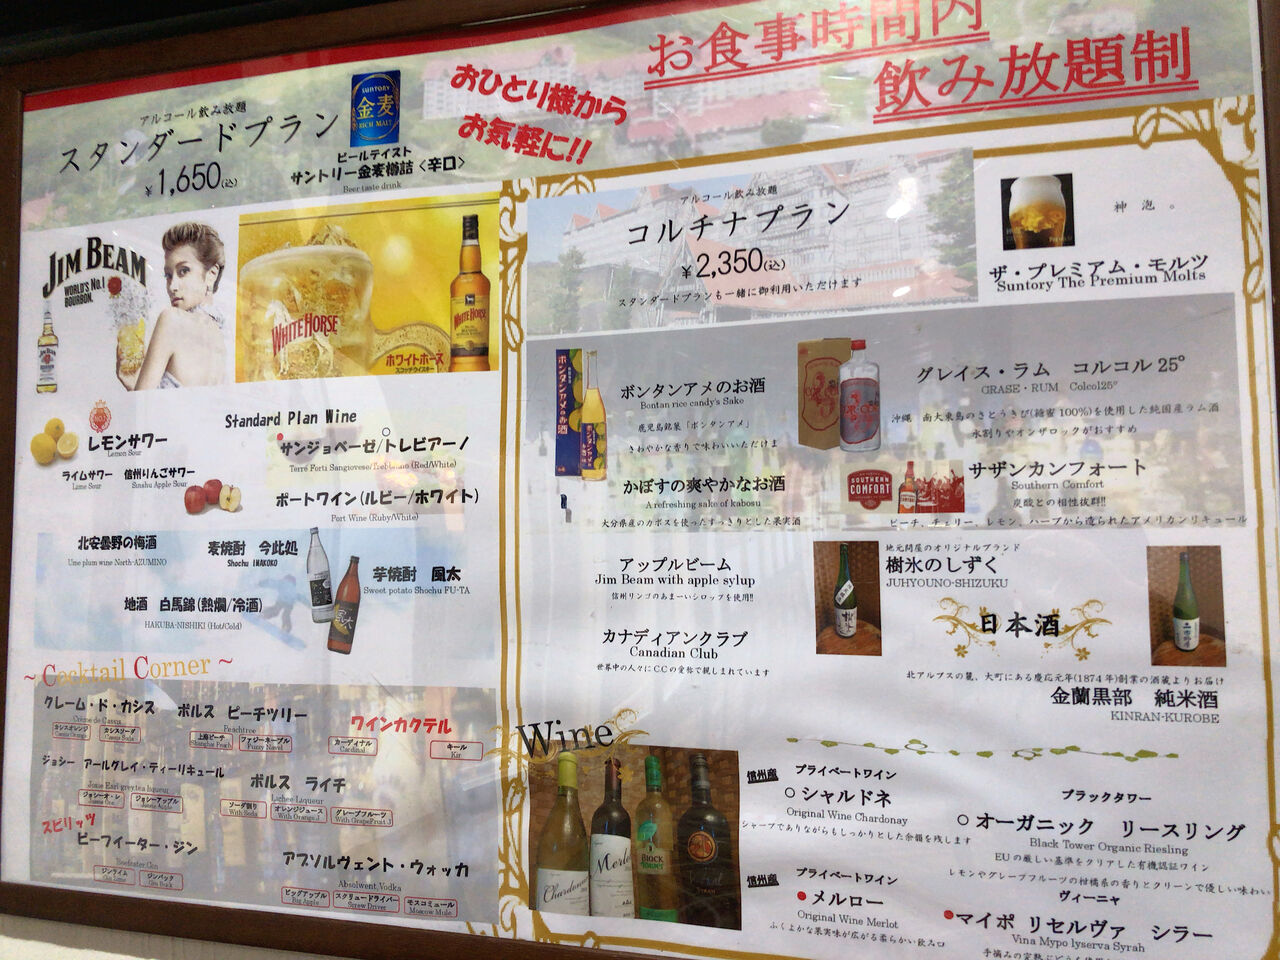 お食事時間内
飲み放題制
おひとり様から
お気軽に!!
アルコール飲み放題
スタンダードプラン
¥1,650(込)
SUNTORY
金麦
RICH MALT
ビールテイスト
サントリー金麦樽詰〈辛口〉
Beer taste drink
JIM BEAM
WORLD'S No.1
BOURBON.
WHITE HORSE
ホワイトホース
スコッチウイスキー
レモンサワー
Lemon Sour
ライムサワー
Lime Sour
信州りんごサワー
Sinshu Apple Sour
Standard Plan Wine
サンジョベーゼ/トレビアーノ
Terre Forti Sangiovese/Trebbiano (Red/White)
ポートワイン(ルビー/ホワイト)
Port Wine (Ruby/White)
北安曇野の梅酒
Ume plum wine North-AZUMINO
麦焼酎 今此処
Shochu IMAKOKO
芋焼酎 風太
Sweet potato Shochu FU-TA
地酒 白馬錦(熱燗/冷酒)
HAKUBA-NISHIKI (Hot/Cold)
~ Cocktail Corner ~
クレーム・ド・カシス
Crème de Cassis
カシスオレンジ
Cassis Orange
カシスソーダ
Cassis Soda
ボルス ピーチツリー
Peachtree
上海ピーチ
Shanghai Peach
ファジーネーブル
Fuzzy Navel
ワインカクテル
カーディナル
Cardinal
キール
Kir
ジョシー アールグレイ・ティーリキュール
Josie Earl grey tea liqueur
ジョシーオ・レ
ジョシーアップル
Josie Apple
ボルス ライチ
Lichee Liqueur
ソーダ割り
With Soda
オレンジジュース
With Orange J
グレープフルーツ
With GrapeFruit J
スピリッツ
ビーフィーター・ジン
Beefeater Gin
ジンライム
Gin Lime
ジンバック
Gin Buck
アブソルヴェント・ウォッカ
Absolwent Vodka
ビッグアップル
Big Apple
スクリュードライバー
Screw Driver
モスコミュール
Moscow Mule
アルコール飲み放題
コルチナプラン
¥2,350(込)
スタンダードプランも一緒に御利用いただけます
神泡。
ザ・プレミアム・モルツ
Suntory The Premium Molts
ボンタンアメのお酒
ボンタンアメのお酒
Bontan rice candy's Sake
鹿児島銘菓「ボンタンアメ」
さわやかな香りで味わいいただけま
グレイス・ラム コルコル 25°
GRASE・RUM Colcol25°
沖縄 南大東島のさとうきび(糖蜜100%)を使用した純国産ラム酒
水割りやオンザロックがおすすめ
かぼすの爽やかなお酒
A refreshing sake of kabosu
大分県産のカボスを使ったすっきりとした果実酒
SOUTHERN
COMFORT
サザンカンフォート
Southern Comfort
炭酸との相性抜群!!
ピーチ、チェリー、レモン、ハーブから造られたアメリカンリキュール
アップルビーム
Jim Beam with apple sylup
信州リンゴのあまーいシロップを使用!!
カナディアンクラブ
Canadian Club
世界中の人々にCCの愛称で親しまれています
地元問屋のオリジナルブランド
樹氷のしずく
JUHYOUNO-SHIZUKU
日本酒
北アルプスの麓、大町にある慶応元年(1874年)創業の酒蔵よりお届け
金蘭黒部 純米酒
KINRAN-KUROBE
Wine
Chardonnay
Merlot
BLOCK
SYRAH
信州産 プライベートワイン
○シャルドネ
Original Wine Chardonay
シャープでありながらもしっかりとした余韻を残します
信州産 プライベートワイン
●メルロー
Original Wine Merlot
ふくよかな果実味が広がる柔らかい飲み口
ブラックタワー
○オーガニック リースリング
Black Tower Organic Riesling
EUの厳しい基準をクリアした有機認証ワイン
レモンやグレープフルーツの柑橘系の香りとクリーンで優しい味わい
ヴィーニャ
●マイポ リセルヴァ シラー
Vina Mypo lyserva Syrah
手摘みの完熟ぶどうを